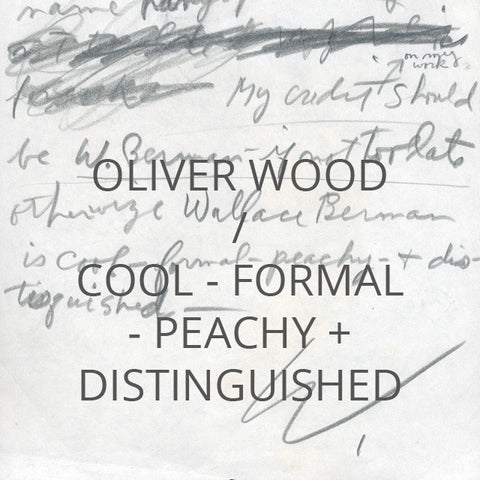 name
on my
work
My credit should
be W. Berman - if not too late
otherwize Wallace Berman
is cool - formal - peachy - + dis-
tinguished
OLIVER WOOD
/
COOL - FORMAL
- PEACHY +
DISTINGUISHED